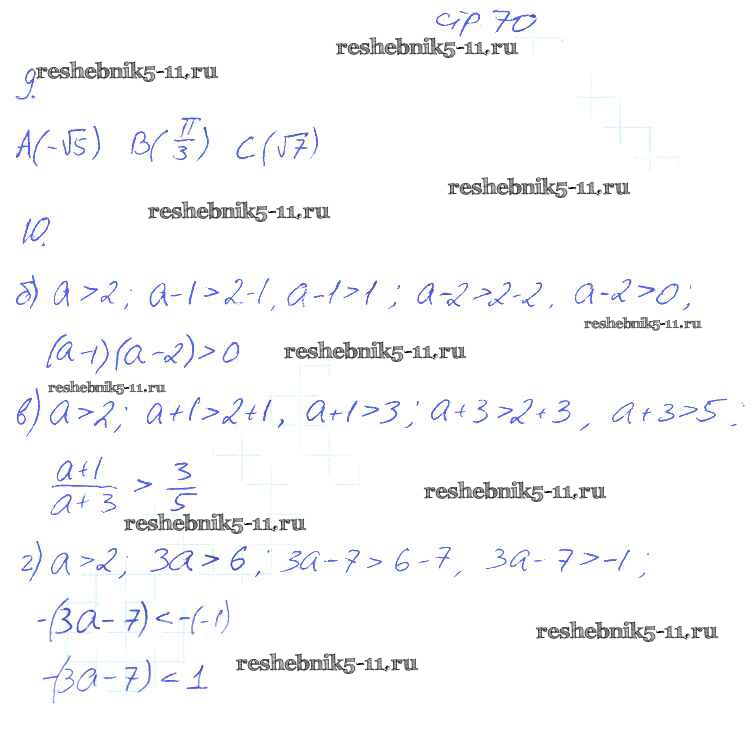 стр 70
reshebnik5-11.ru
reshebnik5-11.ru
9.
A(-√5) B(π/3) C(√7)
reshebnik5-11.ru
reshebnik5-11.ru
10.
б) a>2; a-1>2-1, a-1>1; a-2>2-2, a-2>0;
reshebnik5-11.ru
(a-1)(a-2)>0 reshebnik5-11.ru
reshebnik5-11.ru
в) a>2; a+1>2+1, a+1>3; a+3>2+3, a+3>5;
(a+1)/(a+3) > 3/5
reshebnik5-11.ru
reshebnik5-11.ru
г) a>2; 3a>6; 3a-7>6-7, 3a-7>-1;
-(3a-7)<-(-1)
reshebnik5-11.ru
-(3a-7)<1 reshebnik5-11.ru